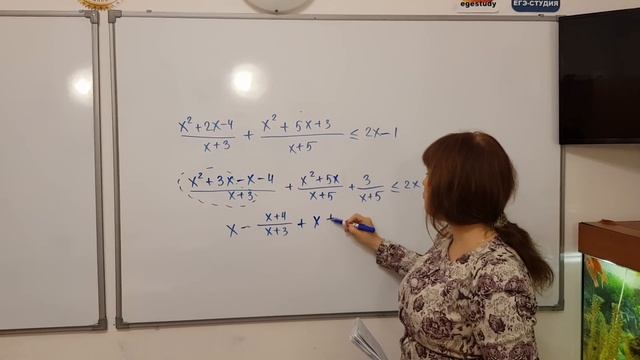 egestudy
ЕГЭ-СТУДИЯ
(x²+2x-4)/(x+3) + (x²+5x+3)/(x+5) ≤ 2x-1
(x²+3x-x-4)/(x+3) + (x²+5x)/(x+5) + 3/(x+5) ≤ 2x
x - (x+4)/(x+3) + x +